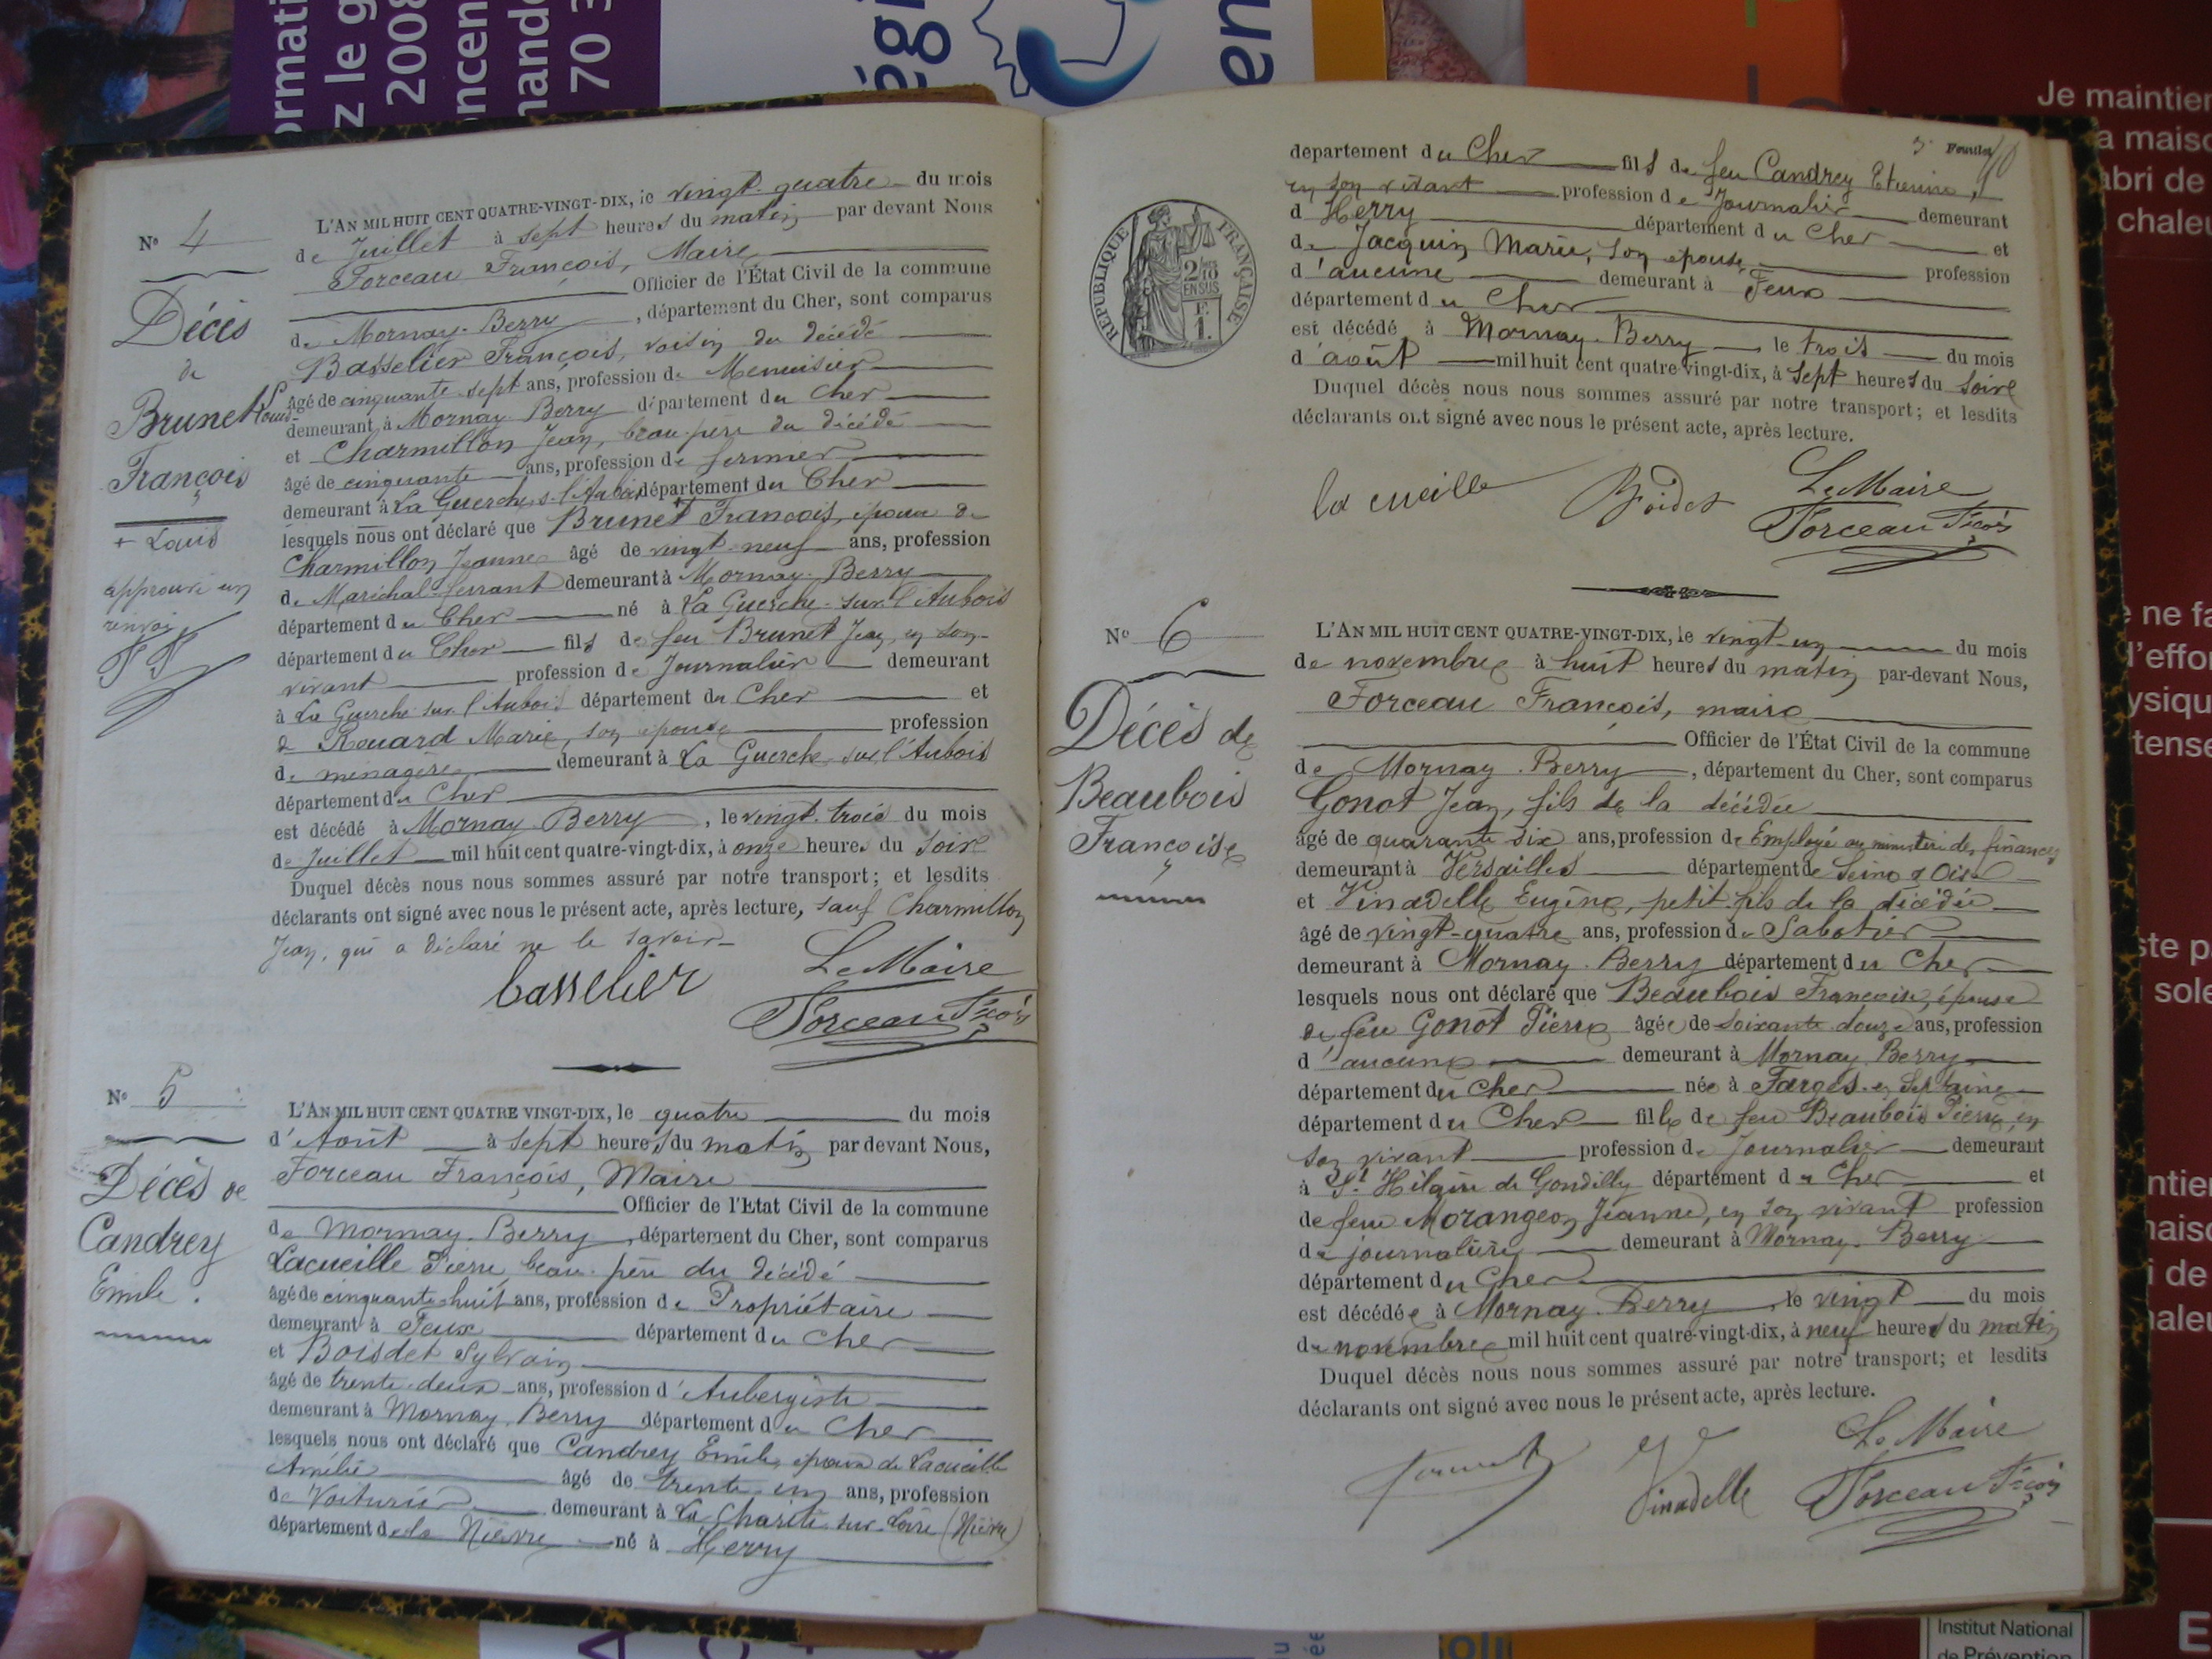 ormati
z le g
2008
oncen
nand
70 3
égi
en
Je maintien
a maiso
abri de
chaleu
e ne fa
d'effor
ysiqu
tense
ste p
sole
ntien
naiso
i de
haleu
Institut National
de Prévention
E
N° 4
Décès
de
Brunet + Louis
François
+ Louis
approuvé un
renvoi
F F
L'AN MIL HUIT CENT QUATRE-VINGT-DIX, le vingt-quatre du mois
de Juillet à sept heures du matin par devant Nous
Forceau François, Maire
Officier de l'État Civil de la commune
de Mornay-Berry, département du Cher, sont comparus
Basselier François, voisin du décédé
âgé de cinquante-sept ans, profession de Menuisier
demeurant à Mornay-Berry département du Cher
et Charmillon Jean, beau-père du décédé
âgé de cinquante ans, profession de fermier
demeurant à La Guerche s. l'Aubois département du Cher
lesquels nous ont déclaré que Brunet + François, époux de
Charmillon Jeanne âgé de vingt-neuf ans, profession
de Maréchal-ferrant demeurant à Mornay-Berry
département du Cher né à La Guerche-sur-l'Aubois
département du Cher fils de feu Brunet Jean, en son
vivant profession de Journalier demeurant
à La Guerche sur l'Aubois département du Cher et
d Rouard Marie, son épouse profession
de ménagère demeurant à La Guerche sur l'Aubois
département du Cher
est décédé à Mornay-Berry, le vingt-trois du mois
de Juillet mil huit cent quatre-vingt-dix, à onze heures du soir
Duquel décès nous nous sommes assuré par notre transport; et lesdits
déclarants ont signé avec nous le présent acte, après lecture, sauf Charmillon
Jean, qui a déclaré ne le savoir
basselier
Le Maire
Forceau Fçois
N° 5
Décès de
Candrey
Emile.
L'AN MIL HUIT CENT QUATRE VINGT-DIX, le quatre du mois
d'Août à sept heures du matin par devant Nous,
Forceau François, Maire
Officier de l'Etat Civil de la commune
de Mornay-Berry, département du Cher, sont comparus
Lacueille Pierre, beau-père du décédé
âgé de cinquante-huit ans, profession de Propriétaire
demeurant à Feux département du Cher
et Boisdet Sylvain
âgé de trente-deux ans, profession d'Aubergiste
demeurant à Mornay-Berry département du Cher
lesquels nous ont déclaré que Candrey Emile, époux de Lacueille
Amélie âgé de trente-un ans, profession
de Voiturier demeurant à La Charité-sur-Loire (Nièvre)
département de la Nièvre né à Herry
3e Feuillet
RÉPUBLIQUE FRANÇAISE
2/10 EN SUS
F. 1.
département du Cher fils de feu Candrey Etienne,
en son vivant profession de Journalier demeurant
d Herry département du Cher et
de Jacquin Marie, son épouse profession
d'aucune demeurant à Feux
département du Cher
est décédé à Mornay-Berry le trois du mois
d'août mil huit cent quatre-vingt-dix, à sept heures du soir
Duquel décès nous nous sommes assuré par notre transport; et lesdits
déclarants ont signé avec nous le présent acte, après lecture.
la cueille
Boidet
Le Maire
Forceau Fçois
N° 6
Décès de
Beaubois
Françoise
L'AN MIL HUIT CENT QUATRE-VINGT-DIX, le vingt-un du mois
de novembre à huit heures du matin par-devant Nous,
Forceau François, maire
Officier de l'État Civil de la commune
de Mornay-Berry, département du Cher, sont comparus
Gonot Jean, fils de la décédée
âgé de quarante-six ans, profession de Employé au ministère des finances
demeurant à Versailles département de Seine & Oise
et Vinadelle Eugène, petit-fils de la décédée
âgé de vingt-quatre ans, profession de Sabotier
demeurant à Mornay-Berry département du Cher
lesquels nous ont déclaré que Beaubois Françoise, épouse
de feu Gonot Pierre âgée de soixante-douze ans, profession
d'aucune demeurant à Mornay-Berry
département du Cher née à Farges-en-Septaine
département du Cher fille de feu Beaubois Pierre, en
son vivant profession de Journalier demeurant
à St Hilaire de Gondilly département du Cher et
de feue Morangeon Jeanne, en son vivant profession
de journalière demeurant à Mornay-Berry
département du Cher
est décédée à Mornay-Berry, le vingt du mois
de novembre mil huit cent quatre-vingt-dix, à neuf heures du matin
Duquel décès nous nous sommes assuré par notre transport; et lesdits
déclarants ont signé avec nous le présent acte, après lecture.
Vinadelle
Le Maire
Forceau Fçois